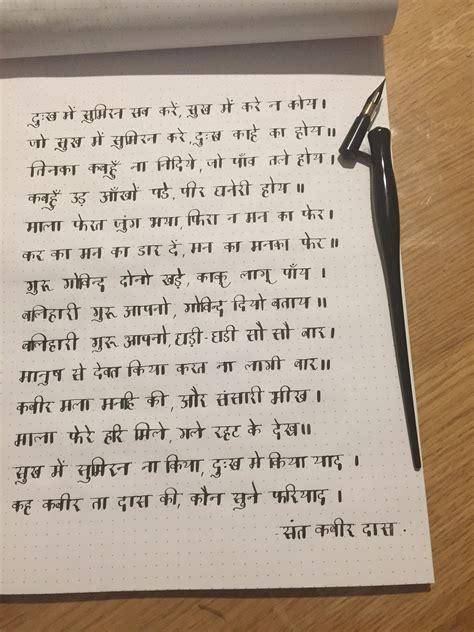 दुःख में सुमिरन सब करें, सुख में करे न कोय।
जो सुख में सुमिरन करे, दुःख काहे का होय॥
तिनका कबहुँ ना निंदिये, जो पाँव तले होय।
कबहुँ उड़ आँखों पड़े, पीर घनेरी होय॥
माला फेरत जुग भया, फिरा न मन का फेर।
कर का मन का डार दें, मन का मनका फेर॥
गुरू गोविन्द दोनो खड़े, काकू लागू पाँय।
बलिहारी गुरू आपनो, गोविन्द दियो बताय॥
बलिहारी गुरू आपनो, घड़ी-घड़ी सौ सौ बार।
मानुष से देवत किया करत ना लागी बार॥
कबीर मला मनहि की, और संसारी भीख।
माला फेरे हरि मिले, गले रहट के देख॥
सुख में सुमिरन ना किया, दुःख मे किया याद।
कह कबीर ता दास की, कौन सुने फरियाद।
- संत कबीर दास.